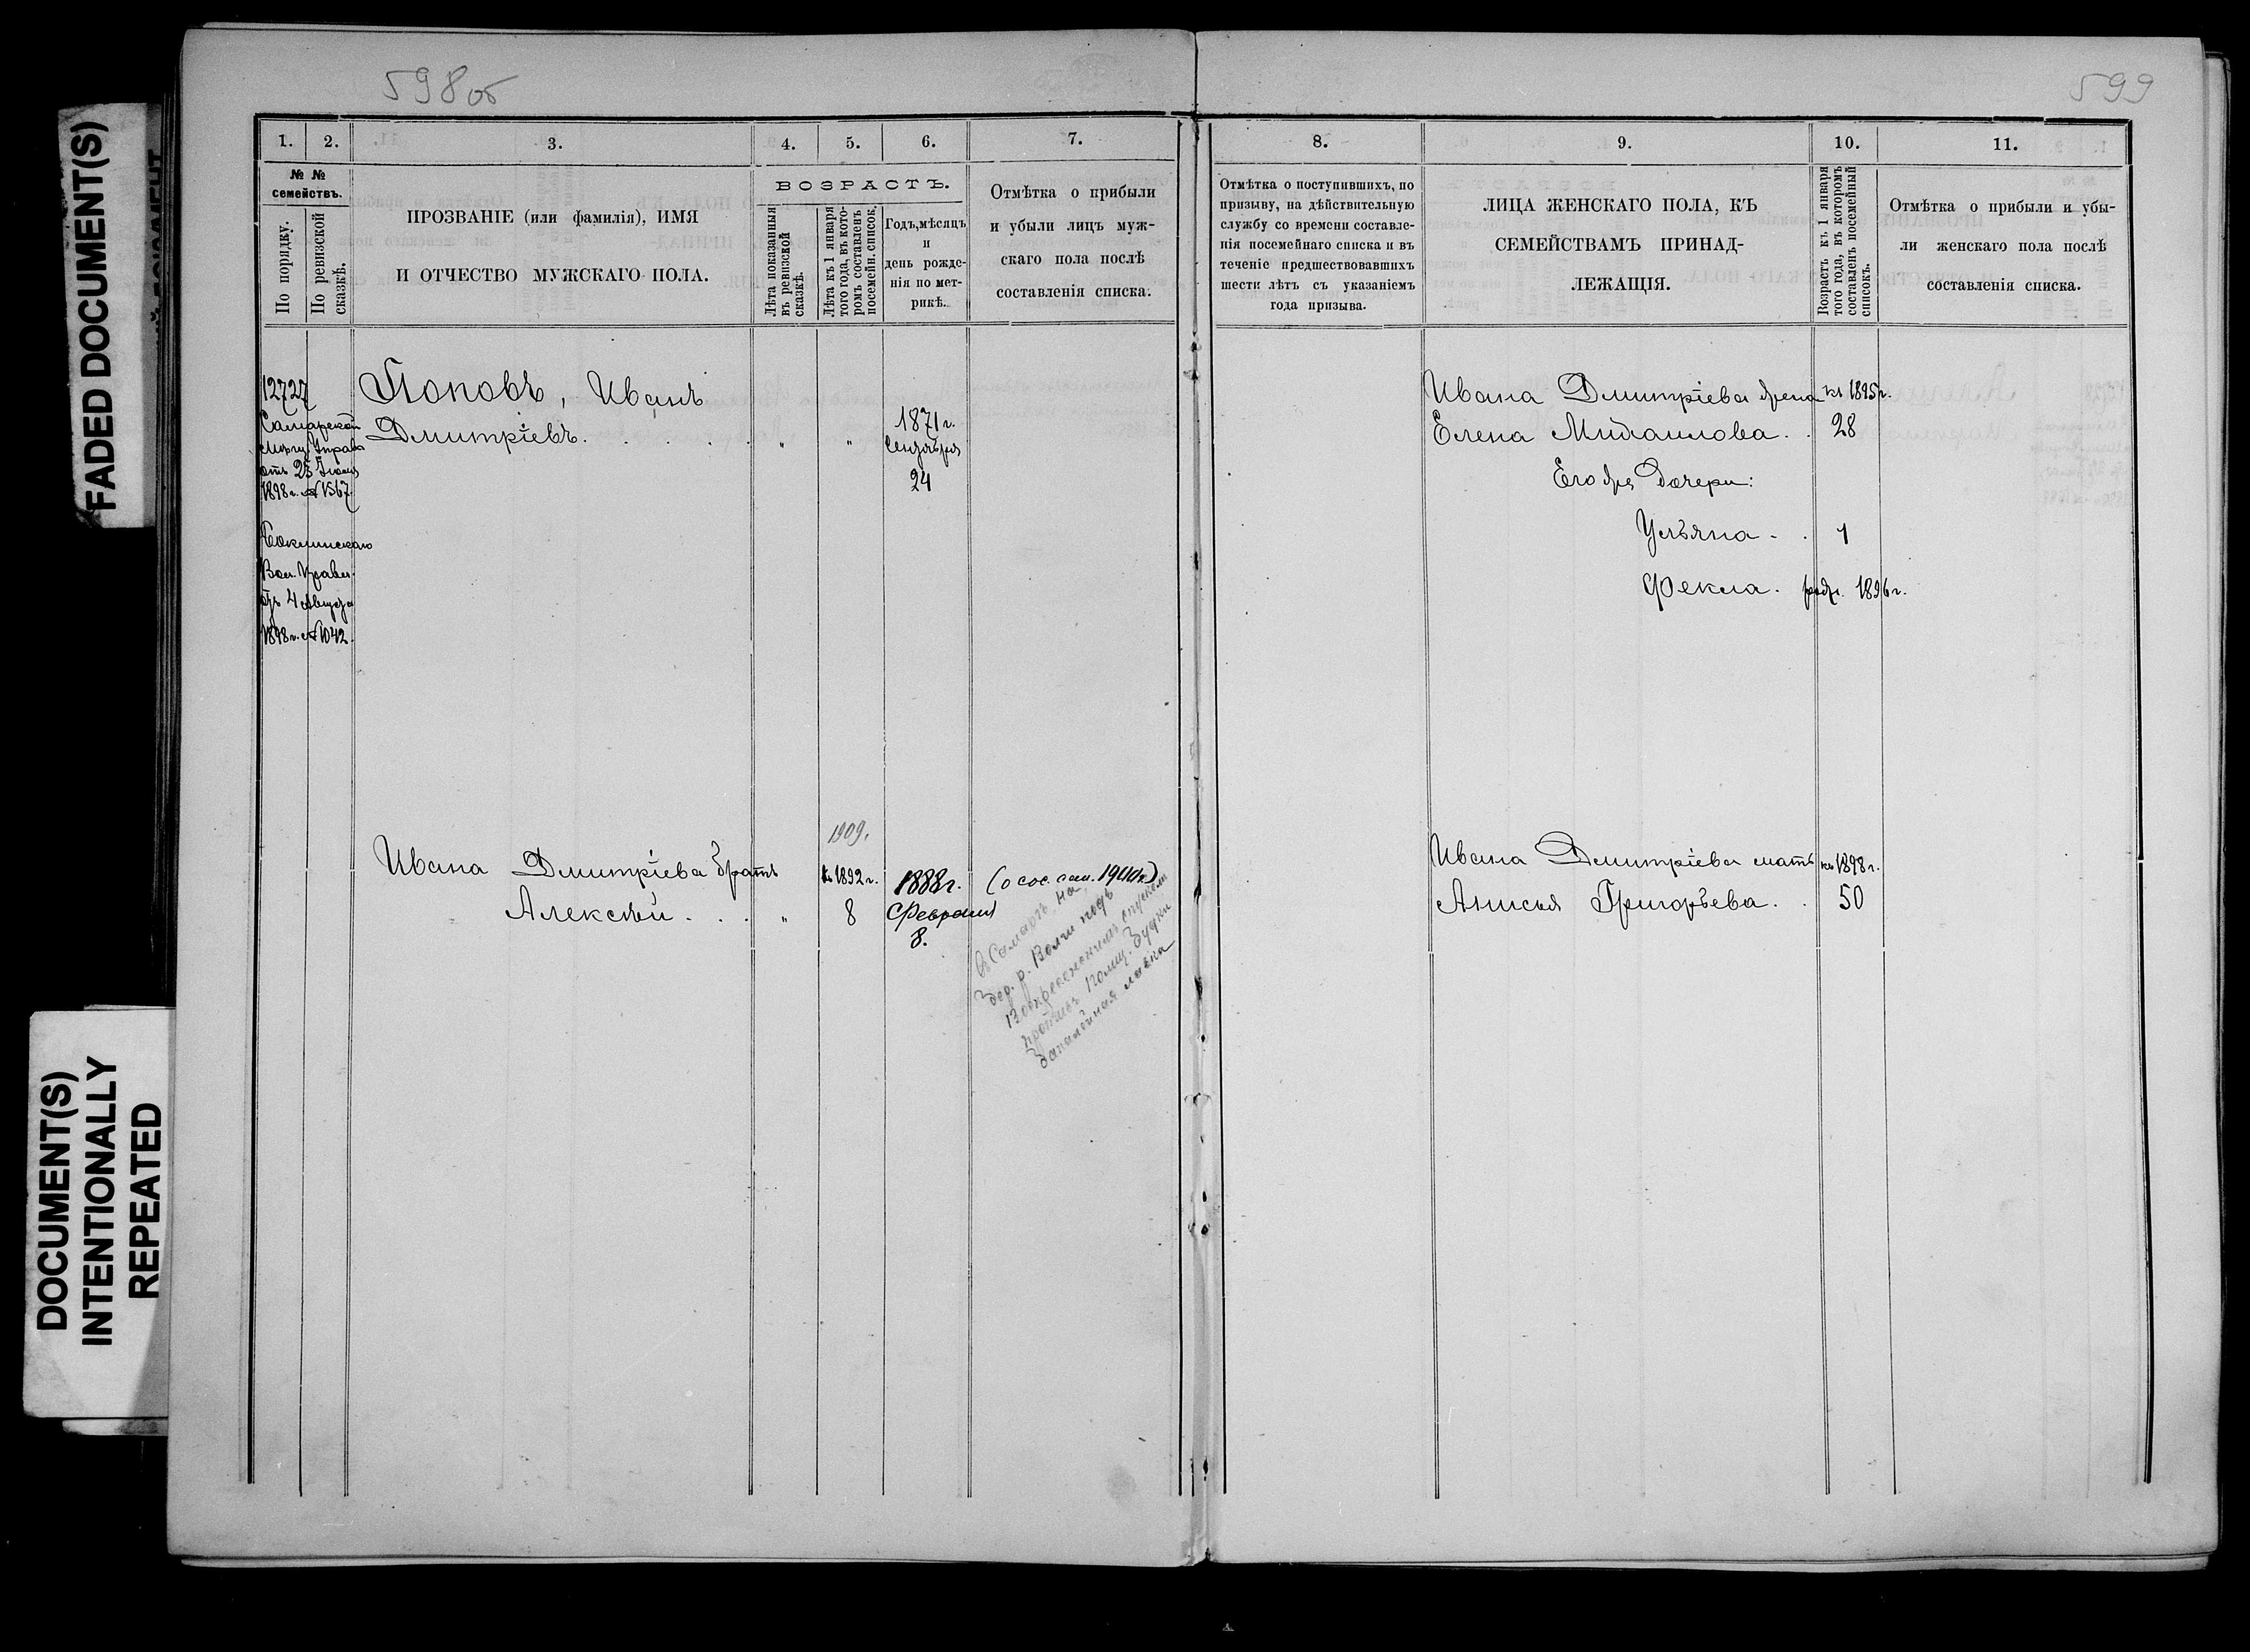 FADED DOCUMENT(S)
DOCUMENT(S)
INTENTIONALLY
REPEATED
598об
1.
2.
3.
4.
5.
6.
7.
№ №
семействъ.
По порядку.
По ревизской
сказкѣ.
ПРОЗВАНІЕ (или фамилія), ИМЯ
И ОТЧЕСТВО МУЖСКАГО ПОЛА.
ВОЗРАСТЪ.
Лѣта показанныя
въ ревизской
сказкѣ.
Лѣта къ 1 января
того года, въ кото-
ромъ составленъ
посемейн. список.
Годъ, мѣсяцъ
и
день рожде-
нія по мет-
рикѣ.
Отмѣтка о прибыли
и убыли лицъ муж-
скаго пола послѣ
составленія списка.
12727
Самарской
Мѣщ. Управы
отъ 25 Іюня
1898 г. № 1567.
Вол. Правл.
отъ 4 Августа
1898 г. № 1042.
Поповъ, Иванъ
Дмитріевъ. . . . .
"
"
1871 г.
Сентября
24
1909.
Ивана Дмитріева братъ
Алексѣй. . .
"
къ 1892 г.
8
1888 г.
Февраля
8.
(о сос. 1900 г.)
въ Самарѣ на
бер. р. Волги подъ
Вознесенскимъ спускомъ
противъ Полиц. Будки
лавка
599
8.
9.
10.
11.
Отмѣтка о поступившихъ, по
призыву, на дѣйствительную
службу со времени составле-
нія посемейнаго списка и въ
теченіе предшествовавшихъ
шести лѣтъ съ указаніемъ
года призыва.
ЛИЦА ЖЕНСКАГО ПОЛА, КЪ
СЕМЕЙСТВАМЪ ПРИНАД-
ЛЕЖАЩІЯ.
Возрастъ къ 1 января
того года, въ которомъ
составленъ посемейный
списокъ.
Отмѣтка о прибыли и убы-
ли женскаго пола послѣ
составленія списка.
Ивана Дмитріева жена
къ 1895 г.
Елена Михаилова. .
28
Его же дочери:
Ульяна. .
1
Фекла.
родл. 1896 г.
Ивана Дмитріева мать
къ 1898 г.
Анисья Григорьева. .
50